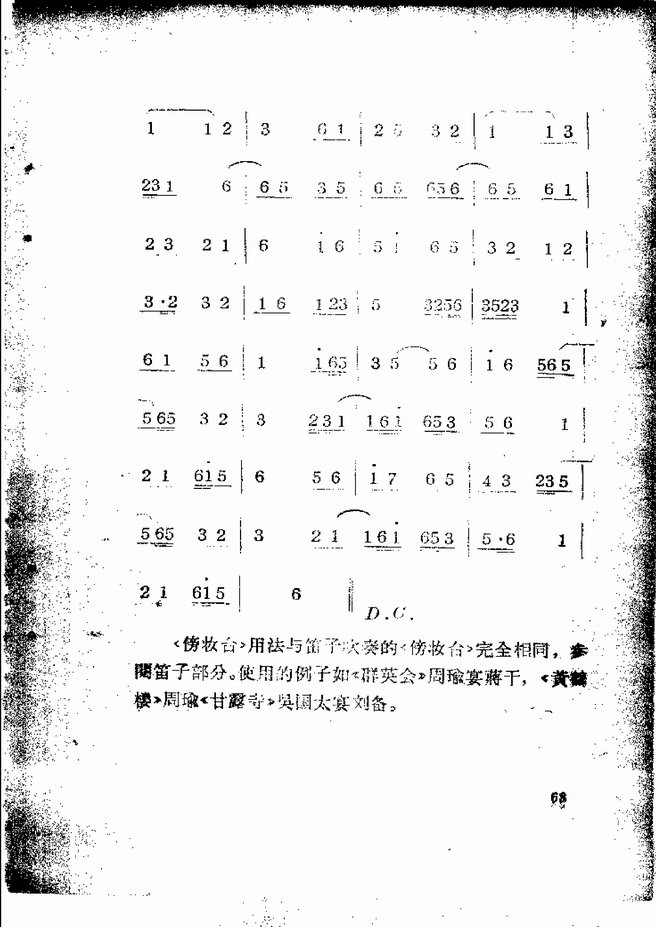 1 1 2 | 3 6 1 | 2 6 3 2 | 1 1 3 |
231 6 | 6 5 3 5 | 6 5 656 | 6 5 6 1 |
2 3 2 1 | 6 i 6 | 5 i 6 5 | 3 2 1 2 |
3·2 3 2 | 1 6 123 | 5 3256 | 3523 1 |
6 1 5 6 | 1 i65 | 3 5 5 6 | i 6 565 |
565 3 2 | 3 231 | 161̇ 653 | 5 6 1 |
2 1 61̇5 | 6 5 6 | i 7 6 5 | 4 3 235 |
565 3 2 | 3 2 1 | 161̇ 653 | 5·6 1 |
2 1 61̇5 6 ‖
D.C.
<傍妆台>用法与笛子吹奏的<傍妆台>完全相同，参
閱笛子部分。使用的例子如《群英会》周瑜宴蔣干，《黃鶴
楼》周瑜《甘露寺》吳国太宴刘备。